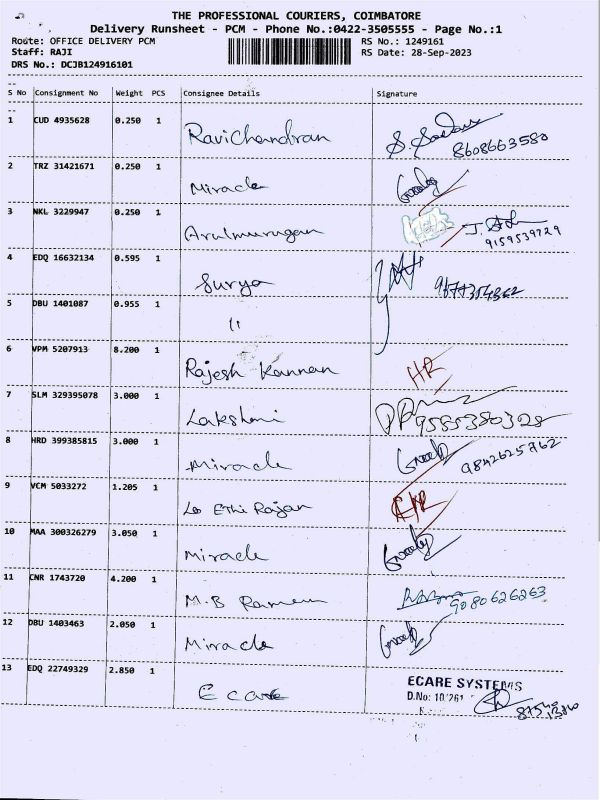 THE PROFESSIONAL COURIERS, COIMBATORE
Delivery Runsheet - PCM - Phone No.:0422-3505555 - Page No.:1
Route: OFFICE DELIVERY PCM RS No.: 1249161
Staff: RAJI RS Date: 28-Sep-2023
DRS No.: DCJB124916101
S No Consignment No Weight PCS Consignee Details Signature
1 CUD 4935628 0.250 1 Ravichandran 8608663580
2 TRZ 31421671 0.250 1 Miracle
3 NKL 3229947 0.250 1 Arulmurugan 9159539729
4 EDQ 16632134 0.595 1 Surya
5 DBU 1401087 0.955 1 "
6 VPM 5207913 8.200 1 Rajesh Kannan HR
7 SLM 329395078 3.000 1 Lakshmi 9585380328
8 HRD 399385815 3.000 1 Miracle 9842625762
9 VCM 5033272 1.205 1 Lo Ethi Rajan
10 MAA 300326279 3.050 1 Miracle
11 CNR 1743720 4.200 1 M.B 9080626263
12 DBU 1403463 2.050 1 Miracle
13 EDQ 22749329 2.850 1 E care ECARE SYSTEMS
D.No: 10/261